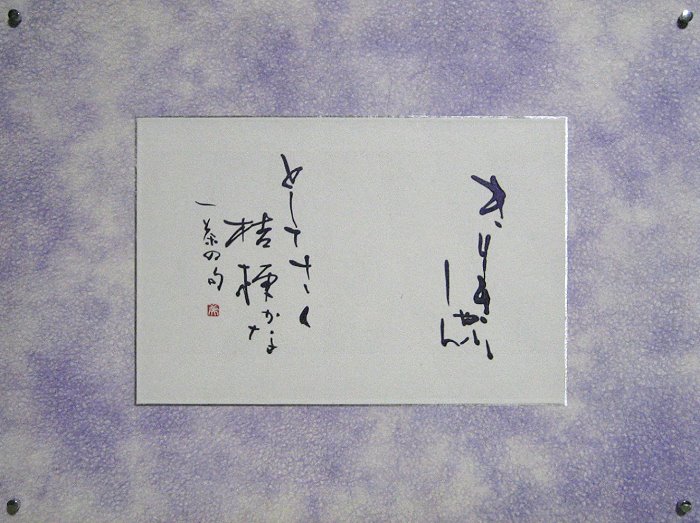 きりきり
しやん
としてさく
桔梗かな
一茶の句